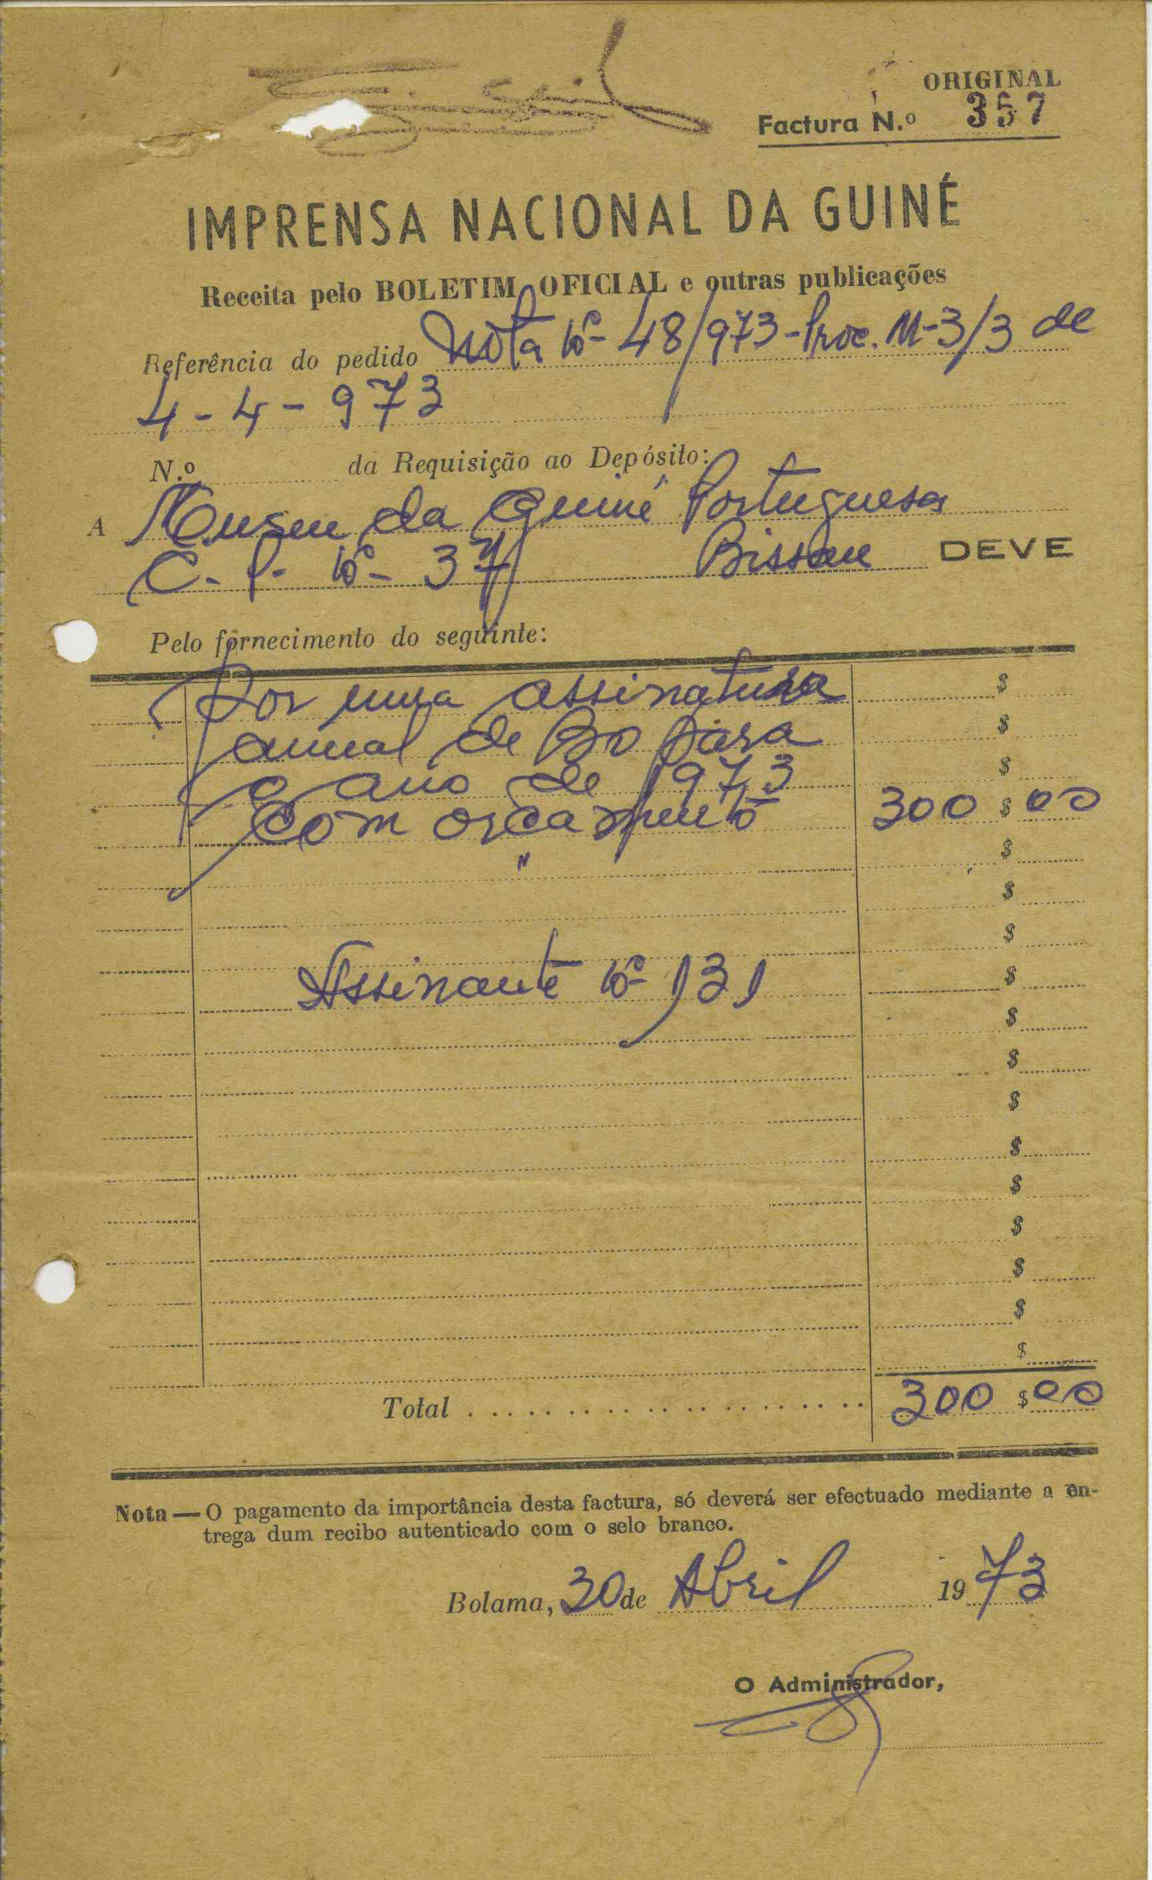 ORIGINAL
Factura N.º 357
IMPRENSA NACIONAL DA GUINÉ
Receita pelo BOLETIM OFICIAL e outras publicações
Referência do pedido Nota nº 48/973-Proc. M-3/3 de
4-4-973
N.º da Requisição ao Depósito:
A Museu da Guiné Portuguesa
C. P. nº 37 Bissau DEVE
Pelo fornecimento do seguinte:
Por uma assinatura $
anual de BO para $
o ano de 1973 $
com orçamento 300 $ 00
" $
$
$
Assinante nº 131 $
$
$
$
$
$
$
$
$
$
Total 300 $ 00
Nota — O pagamento da importância desta factura, só deverá ser efectuado mediante a en-
trega dum recibo autenticado com o selo branco.
Bolama, 30 de Abril 1973
O Administrador,